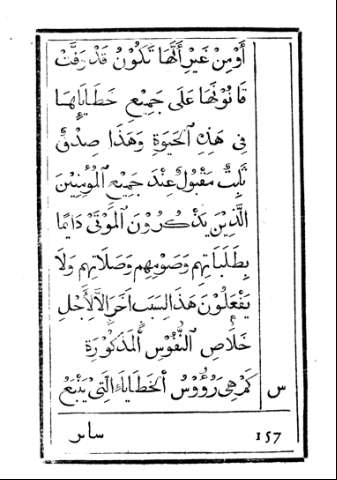 أَوْ مِنْ غَيْرِ أَنَّهَا تَكُونُ قَدْ وَفَّتْ
قَانُونَهَا عَلَى جَمِيعِ خَطَايَاهَا
فِي هَذِهِ الْحَيَوةِ وَهَذَا صِدْقٌ
ثَابِتٌ مَقْبُولٌ عِنْدَ جَمِيعِ الْمُؤْمِنِيْنَ
الَّذِينَ يَذْكُرُوْنَ الْمَوْتَى دَايِمًا
بِطَلَبَاتِهِمْ وَصَوْمِهِمْ وَصَلَاتِهِمْ وَلَا
يَفْعَلُوْنَ هَذَا لِسَبَبٍ اَخَرَ اِلَّا لِأَجْلِ
خَلَاصِ النُّفُوْسِ الْمَذْكُوْرَةِ
س كَمْ هِيَ رُؤُوْسُ الْخَطَايَاءِ الَّتِيْ يَنْبَعُ
157 ساير